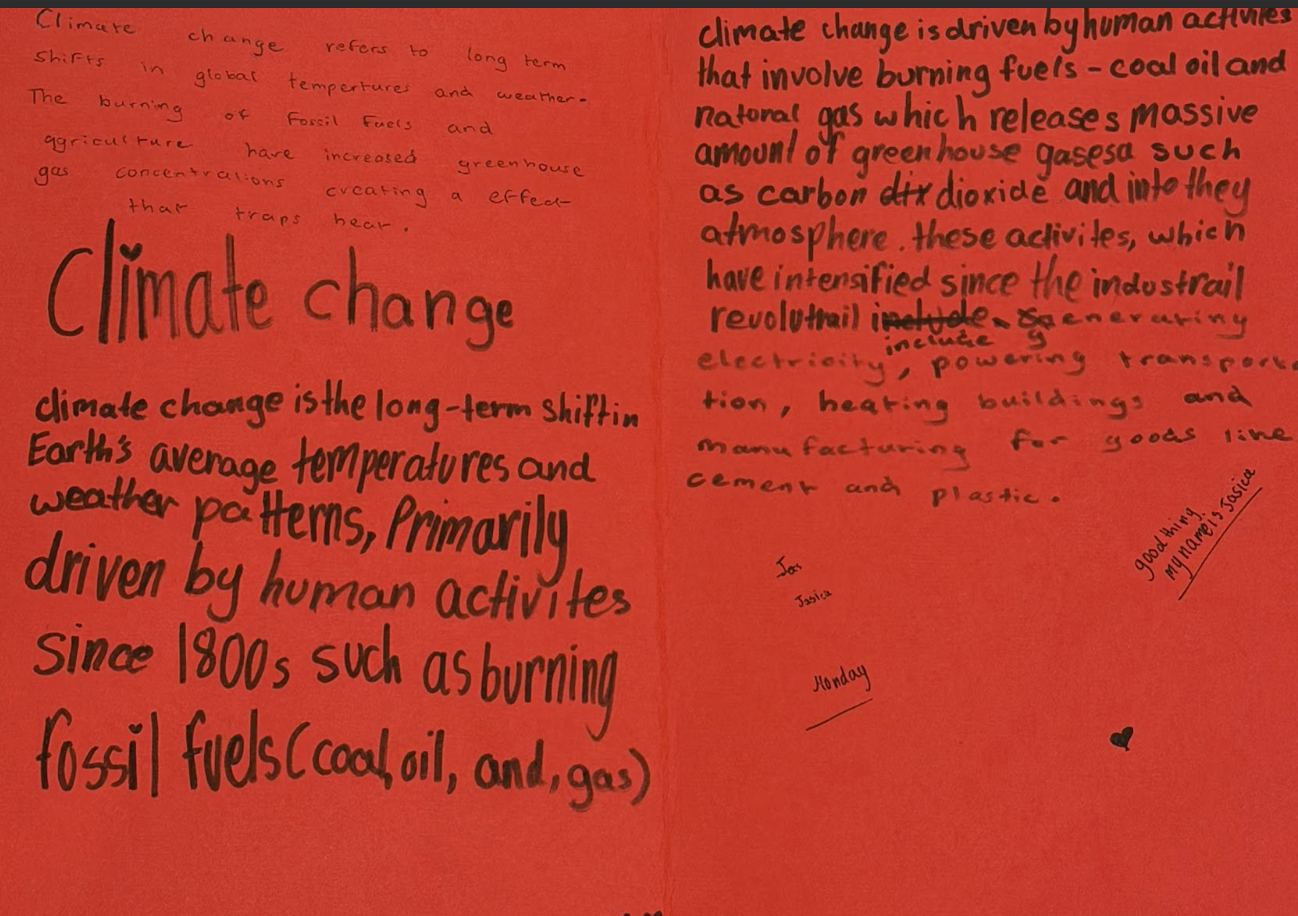 Climate change refers to long term
shifts in global tempertures and weather.
The burning of Fossil Fuels and
aggriculture have increased greenhouse
gas concentrations creating a effect
that traps hear.
Climate change
climate change is the long-term shift in
Earth's average temperatures and
weather patterns, Primarily
driven by human activites
since 1800s such as burning
fossil fuels (coal, oil, and, gas)
climate change is driven by human activites
that involve burning fuels - coal oil and
natoral gas which releases massive
amount of greenhouse gasesa such
as carbon dix dioxide and into they
atmosphere. these activites, which
have intensified since the industrail
revolutrail include generating
include g
electricity, powering transporta
tion, heating buildings and
manufacturing for goods line
cement and plastic.
good thing
my name is Jasica
Jas
Jasica
Monday